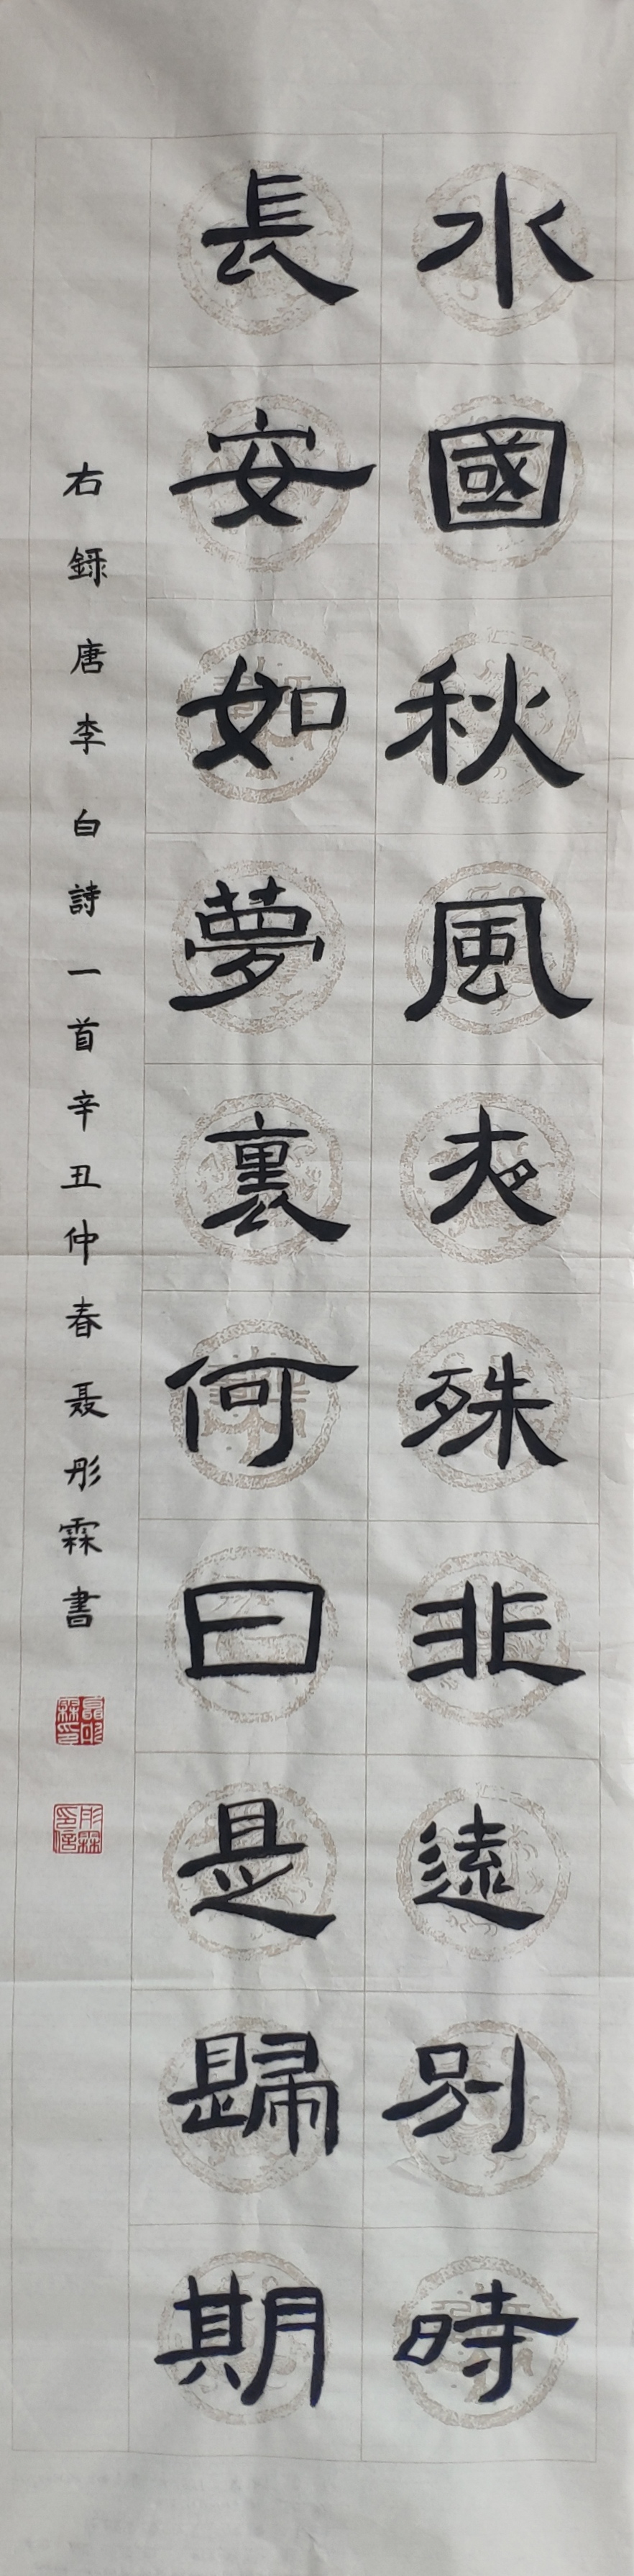 水國秋風夜殊非遠別時
長安如夢裏何日是歸期
右録唐李白詩一首辛丑仲春聂彤霖書